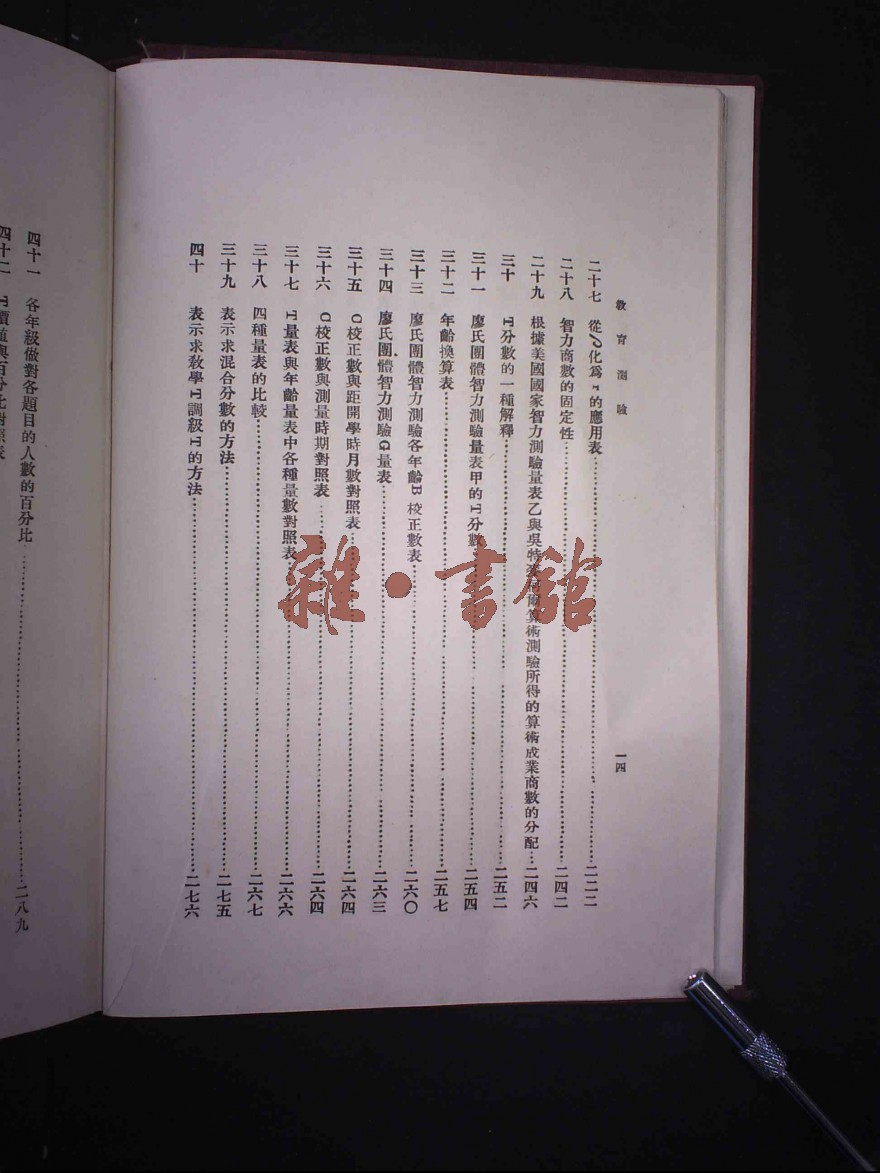 教育測驗
一四
二十七 從ρ化爲r的應用表……二二二
二十八 智力商數的固定性……二四二
二十九 根據美國國家智力測驗量表乙與吳特 算術測驗所得的算術成業商數的分配…二四六
三十 T分數的一種解釋……二五二
三十一 廖氏團體智力測驗量表甲的T分數……二五四
三十二 年齡換算表……二五七
三十三 廖氏團體智力測驗各年齡B校正數表……二六〇
三十四 廖氏團體智力測驗G量表……二六三
三十五 C校正數與距開學時月數對照表……二六四
三十六 C校正數與測量時期對照表……二六四
三十七 T量表與年齡量表中各種量數對照表……二六六
三十八 四種量表的比較……二六七
三十九 表示求混合分數的方法……二七五
四十 表示求教學T調級T的方法……二七六
四十一 各年級做對各題目的人數的百分比……二八九
四十二 T價值與百分比對照表
雜·書館